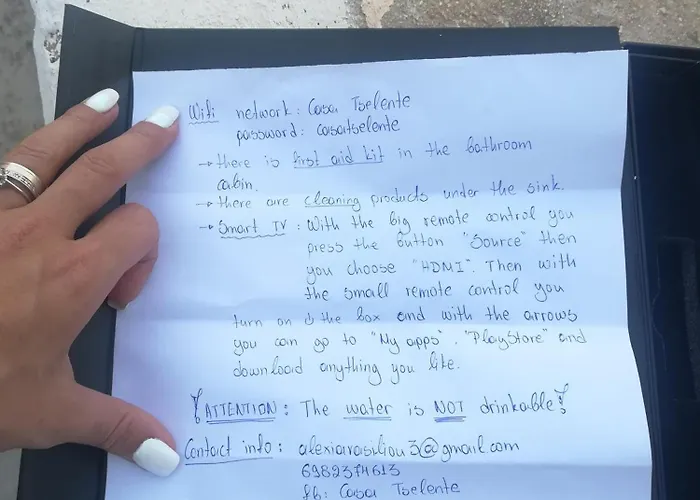 Wifi network: Casa Tselente
password: casatselente
→ there is first aid kit in the bathroom
cabin.
→ there are cleaning products under the sink.
→ Smart TV: With the big remote control you
press the button "Source" then
you choose "HDMI". Then with
the small remote control you
turn on ⏻ the box and with the arrows
you can go to "My apps". "PlayStore" and
download anything you like.
! ATTENTION: The water is NOT drinkable!
Contact info: alexiavasiliou3@gmail.com
6989374613
fb: Casa Tselente